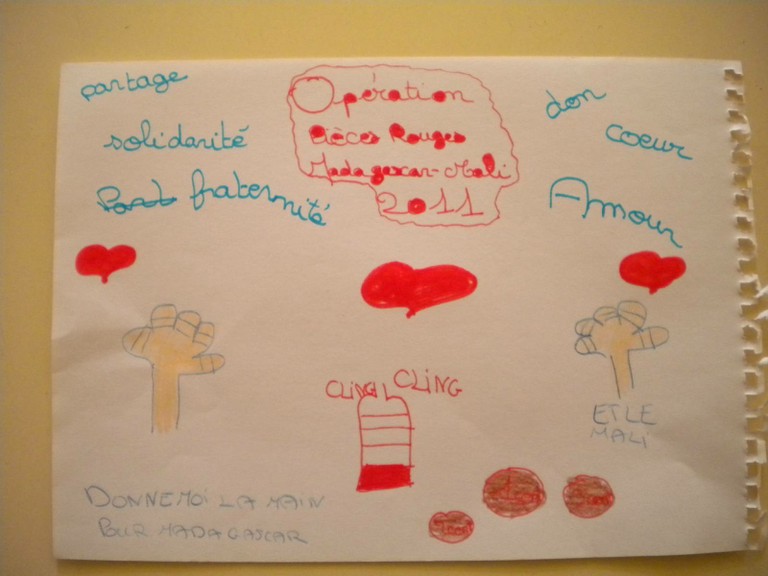 partage
solidarité
fraternité
Opération
Pièces Rouges
Madagascar-Mali
2011
don
coeur
Amour
CLING CLING
ET LE
MALI
DONNE MOI LA MAIN
POUR MADAGASCAR